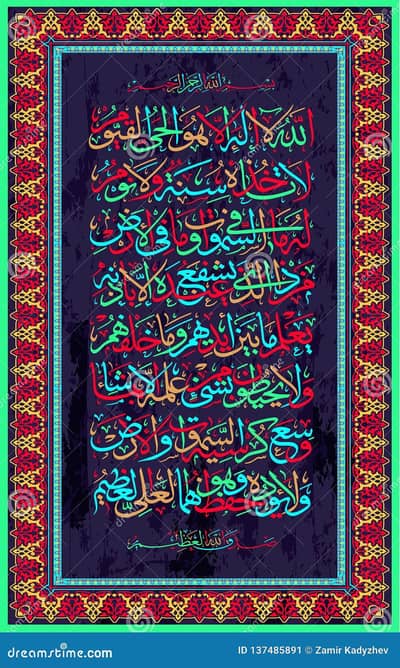 بسم الله الرحمن الرحيم
الله لا إله إلا هو الحي القيوم
لا تأخذه سنة ولا نوم
له ما في السموات وما في الأرض
من ذا الذي يشفع عنده إلا بإذنه
يعلم ما بين أيديهم وما خلفهم
ولا يحيطون بشيء من علمه إلا بما شاء
وسع كرسيه السموات والأرض
ولا يؤده حفظهما وهو العلي العظيم
صدق الله العظيم
dreamstime.com
ID 137485891 © Zamir Kadyzhev